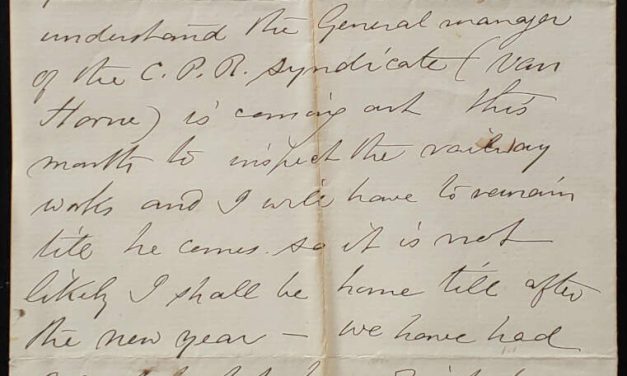 understand the General manager
of the C. P. R. Syndicate (Van
Horne) is coming out this
month to inspect the railway
works and I will have to remain
till he comes. so it is not
likely I shall be home till after
the new year — we have had